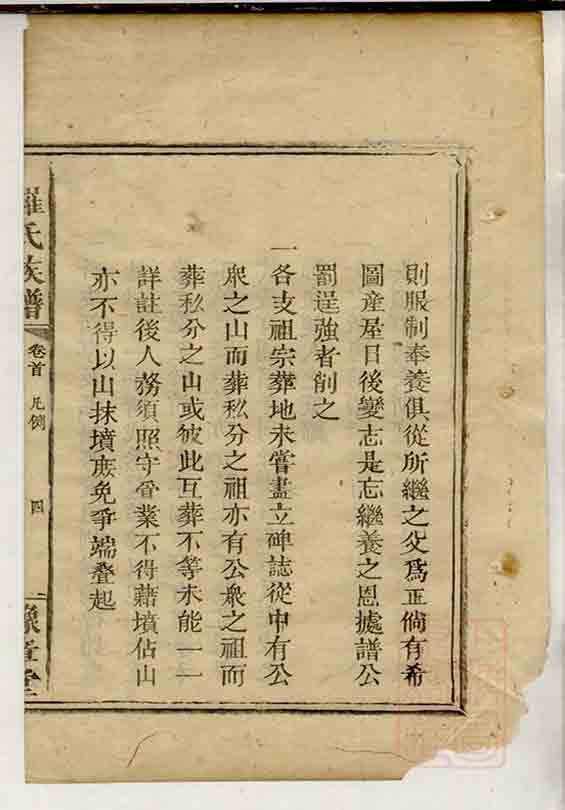 則服制奉養俱從所繼之父爲正倘有希
圖產屋日後變志是忘繼養之恩據譜公
罰逞強者削之
一各支祖宗葬地未嘗盡立碑誌從中有公
衆之山而葬私分之祖亦有公衆之祖而
葬私分之山或彼此互葬不等未能一一
詳註後人務須照守管業不得藉墳佔山
亦不得以山抹墳庶免爭端叠起
羅氏族譜
卷首 凡例
四
豫章堂